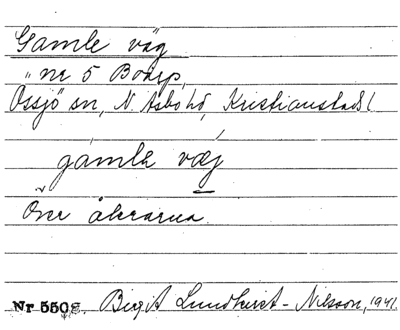 Gamle väg
" nr 5 Boarp,
Össjö sn, N Åsbo hd, Kristianstads l
gámlɛ væ̀j
Över åkrarna.
Nr 5508. Birgit Lundkvist - Nilsson, 1941.